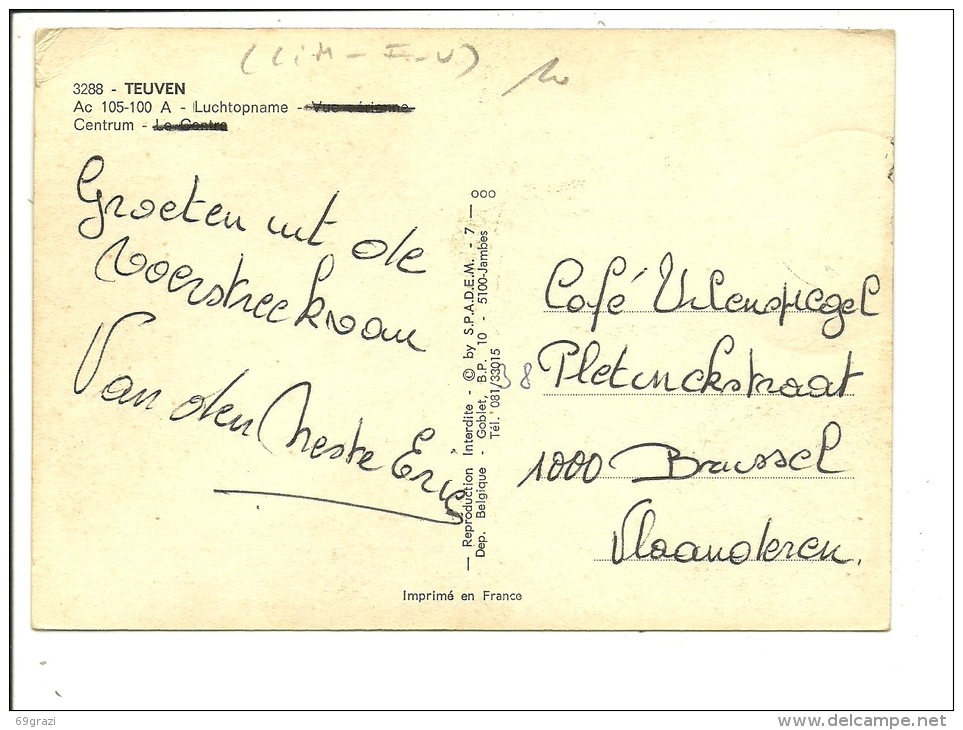 (LiM - F-V)
3288 - TEUVEN
Ac 105-100 A - Luchtopname - Vue aérienne
Centrum - Le Centre
Groeten uit de
Voerstreek van
Van den Neste Eric
ooo
— Reproduction Interdite - © by S.P.A.D.E.M. - 7 —
Dep. Belgique - Goblet, B.P. 10 - 5100-Jambes
Tél. 081/33015
Café Uilenspiegel
38 Pletinckstraat
1000 Brussel
Vlaanderen.
Imprimé en France
69grazi
www.delcampe.net